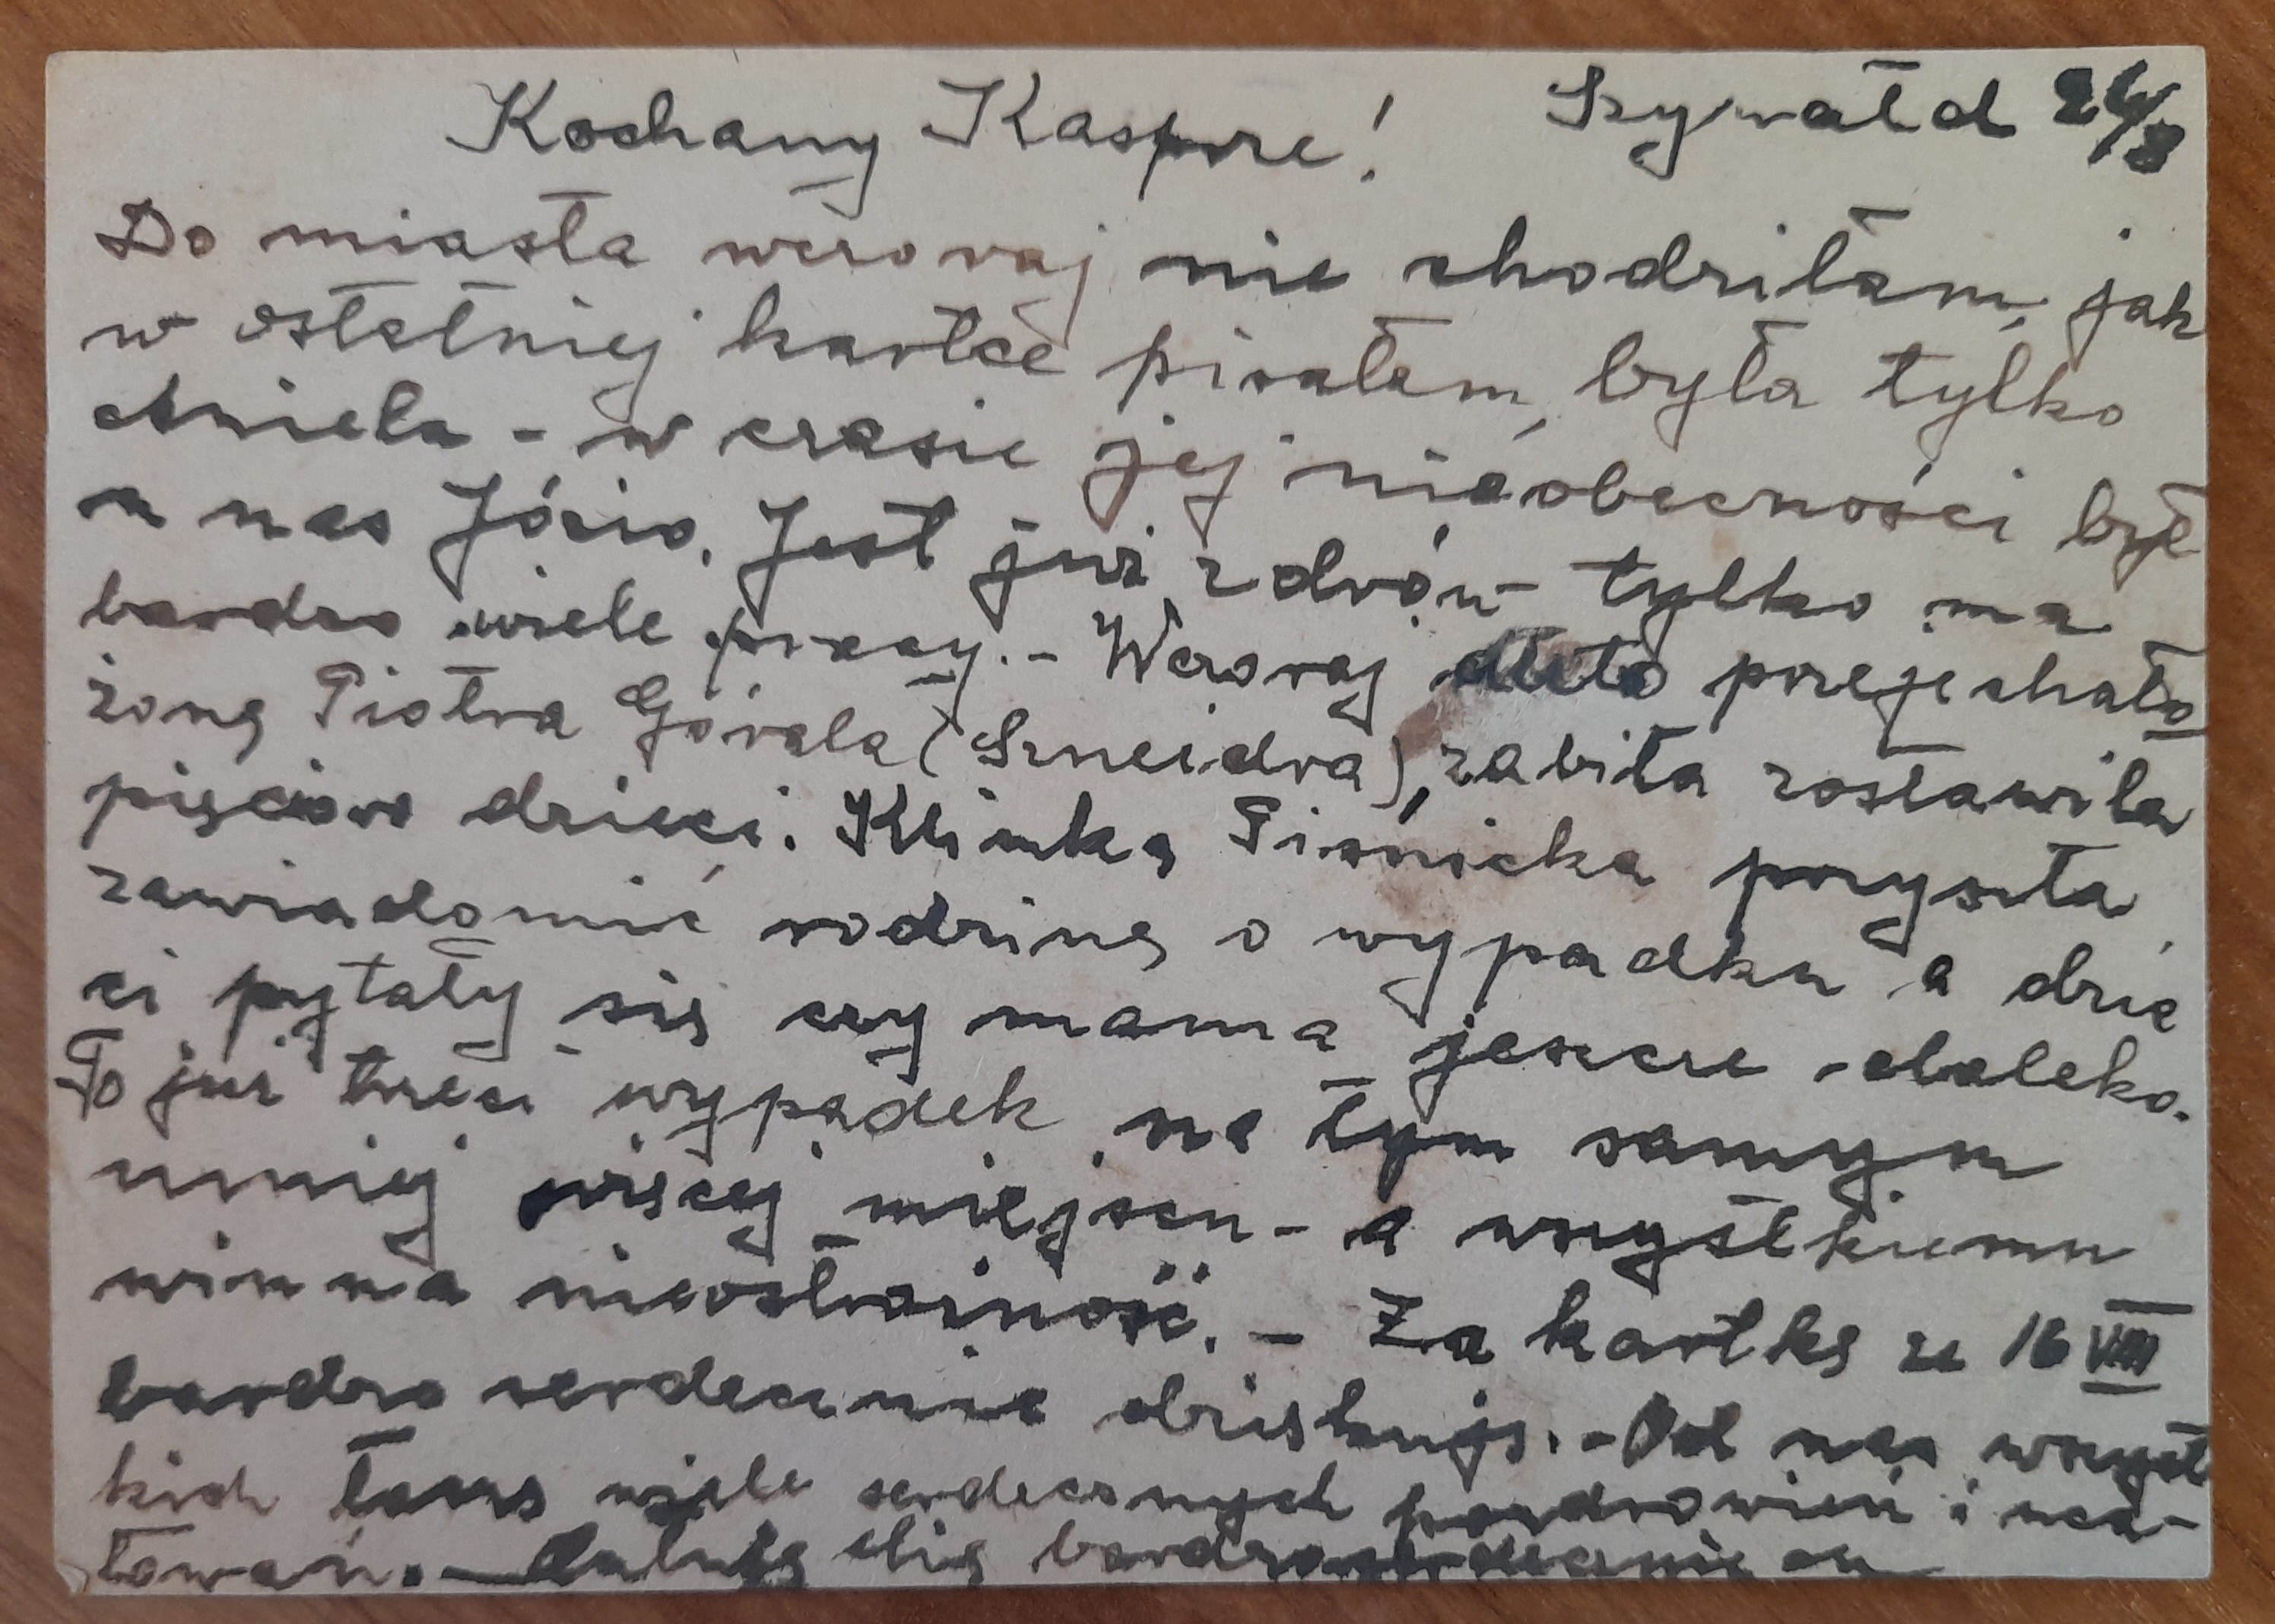 Kochany Kasprze! Szywałd 26/8
Do miasta wczoraj nie chodziłam, jak
w ostatniej kartce pisałam, była tylko
Aniela - w czasie jej nieobecności był
u nas Józio. Jest już zdrów tylko ma
bardzo wiele pracy. - Wczoraj auto przejechało
żonę Piotra Górala (Szneidra), zabita zostawiła
pięcioro dzieci. Klimka Pisnicka przyszła
zawiadomić rodzinę o wypadku a dzie
ci pytały się czy mama jeszcze daleko.
To już trzeci wypadek na tym samym
mniej więcej miejscu - a wszystkiemu
winna nieostrożność. - Za kartkę ze 16 VIII
bardzo serdecznie dziękuję. - Od nas wszyst
kich zasyłam wiele serdecznych pozdrowień i uca-
łowań. - Całuję Cię bardzo serdecznie